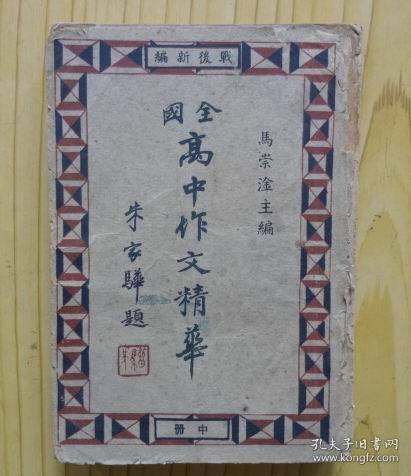 戰後新編
全國
高中作文精華
馬崇淦主編
朱家驊題
中册
孔夫子旧书网
kongfz.com